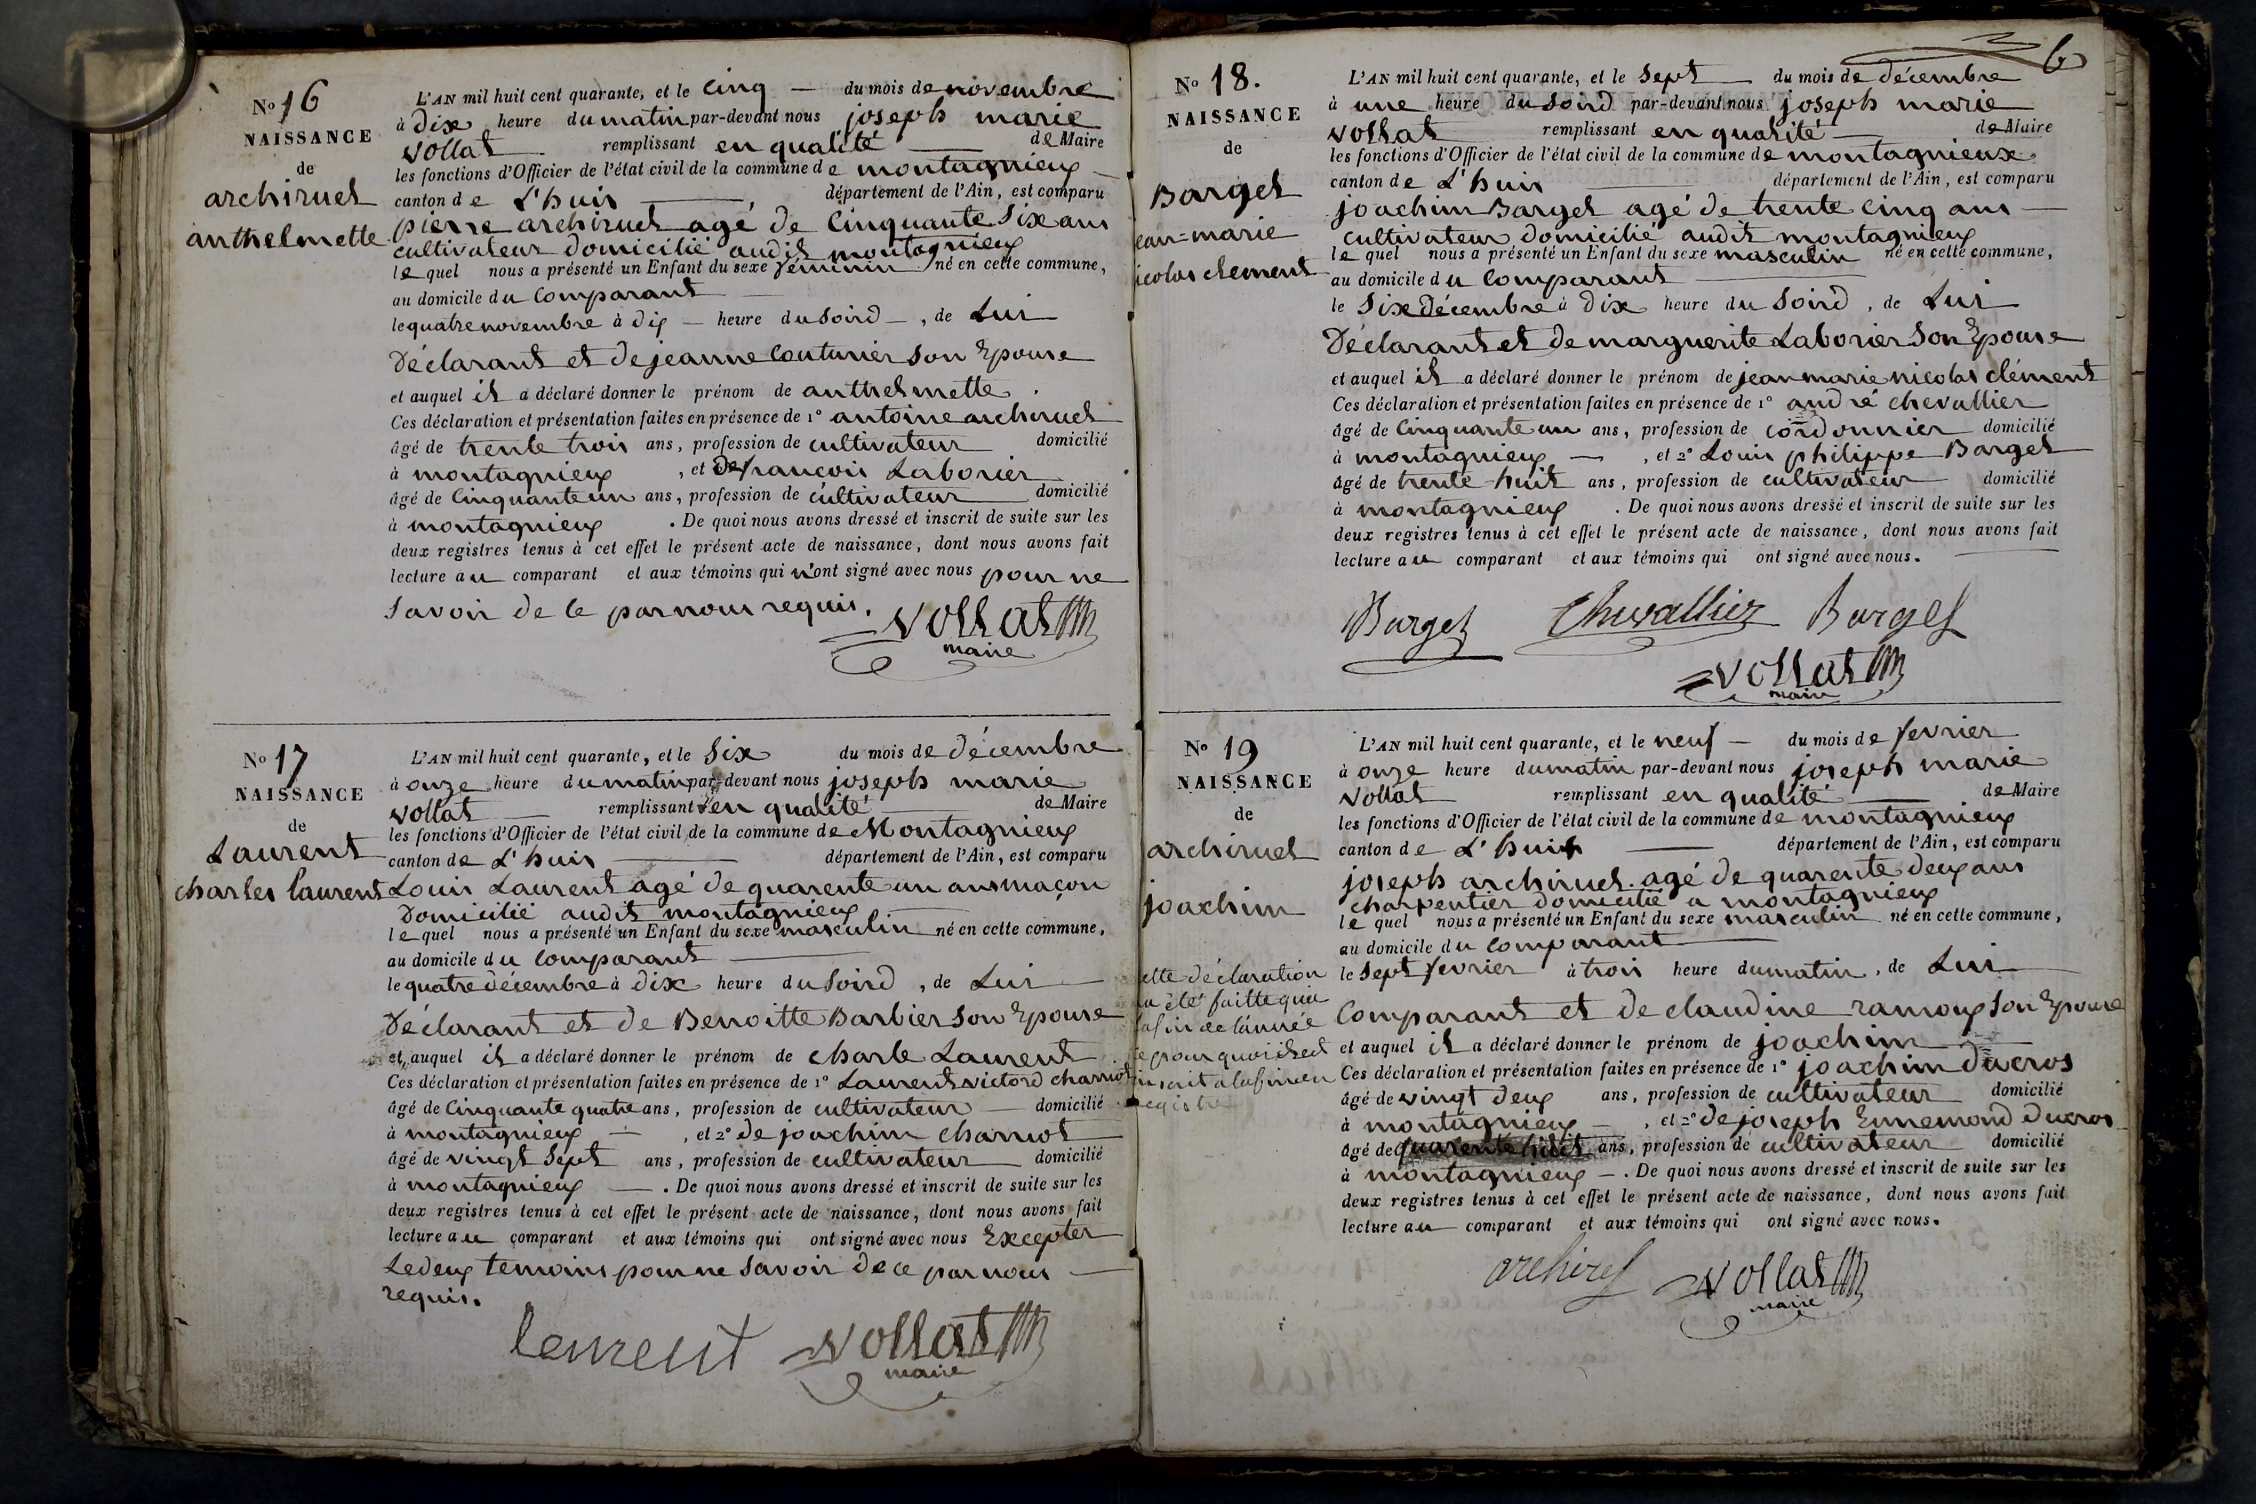 No 16
NAISSANCE
de
archiruel
anthelmette
L'AN mil huit cent quarante, et le cinq — du mois de novembre
à dix heure du matin par-devant nous joseph marie
vollat remplissant en qualité — de Maire
les fonctions d'Officier de l'état civil de la commune de montagnieux
canton de L'huis — département de l'Ain, est comparu
pierre archiruel agé de Cinquante Six ans
cultivateur domicilié audit montagnieux
le quel nous a présenté un Enfant du sexe féminin né en cette commune,
au domicile du Comparant
le quatre novembre à dix — heure du Soird —, de Lui
Déclarant et de jeanne Couturier Son Epouse
et auquel il a déclaré donner le prénom de anthelmette.
Ces déclaration et présentation faites en présence de 1° antoine archiruel
âgé de trente trois ans, profession de cultivateur domicilié
à montagnieux , et De françois Laborier
âgé de Cinquante un ans, profession de cultivateur domicilié
à montagnieux . De quoi nous avons dressé et inscrit de suite sur les
deux registres tenus à cet effet le présent acte de naissance, dont nous avons fait
lecture au comparant et aux témoins qui n'ont signé avec nous pour ne
Savoir de Ce par nous requis.
Vollat
maire
No 17
NAISSANCE
de
Laurent
charles laurent
L'AN mil huit cent quarante, et le Six du mois de Décembre
à onze heure du matin par-devant nous joseph marie
vollat — remplissant en qualité de Maire
les fonctions d'Officier de l'état civil de la commune de Montagnieux
canton de L'huis — département de l'Ain, est comparu
Louis Laurent agé de quarente un ans maçon
Domicilié audit montagnieux
le quel nous a présenté un Enfant du sexe masculin né en cette commune,
au domicile du Comparant —
le quatre décembre à Dix heure du Soird , de Lui —
Déclarant et de Benoitte Barbier Son Epouse
et auquel il a déclaré donner le prénom de charle Laurent
Ces déclaration et présentation faites en présence de 1° Laurent victord charriot
âgé de Cinquante quatre ans, profession de cultivateur — domicilié
à montagnieux — , et 2° de joachim charriot
âgé de vingt Sept ans, profession de cultivateur domicilié
à montagnieux — . De quoi nous avons dressé et inscrit de suite sur les
deux registres tenus à cet effet le présent acte de naissance, dont nous avons fait
lecture au comparant et aux témoins qui ont signé avec nous Excepter
Le deux temoins pour ne Savoir de Ce par nous —
requis.
laurent Vollat
maire
6
No 18.
NAISSANCE
de
Barget
jean=marie
nicolas clement
L'AN mil huit cent quarante, et le Sept — du mois de décembre
à une heure du Soird par-devant nous joseph marie
vollat remplissant en qualité — de Maire
les fonctions d'Officier de l'état civil de la commune de montagnieux
canton de L'huis — département de l'Ain, est comparu
joachim Barget agé de trente cinq ans —
cultivateur domicilié audit montagnieux
le quel nous a présenté un Enfant du sexe masculin né en cette commune,
au domicile du Comparant —
le Six Décembre à Dix heure du Soird , de Lui
Déclarant et de marguerite Laborier Son Epouse
et auquel il a déclaré donner le prénom de jean marie nicolas clément
Ces déclaration et présentation faites en présence de 1° andré chevallier
âgé de Cinquante un ans, profession de cordonnier domicilié
à montagnieux — , et 2° Louis philippe Barget
âgé de trente huit ans, profession de cultivateur domicilié
à montagnieux . De quoi nous avons dressé et inscrit de suite sur les
deux registres tenus à cet effet le présent acte de naissance, dont nous avons fait
lecture au comparant et aux témoins qui ont signé avec nous. —
Barget Chevallier Barget
Vollat
maire
No 19
NAISSANCE
de
archiruel
joachim
cette déclaration
a été faitte qua
la fin de l'année
inscrit a la fin du
registre
L'AN mil huit cent quarante, et le neuf — du mois de fevrier
à onze heure du matin par-devant nous joseph marie
vollat remplissant en qualité — de Maire
les fonctions d'Officier de l'état civil de la commune de montagnieux
canton de L'huis — département de l'Ain, est comparu
joseph archiruel agé de quarente deux ans
charpentier domicilié a montagnieux
le quel nous a présenté un Enfant du sexe masculin né en cette commune,
au domicile du Comparant —
le Sept fevrier à trois heure du matin , de Lui —
Comparant et de claudine ramoux Son Epouse
et auquel il a déclaré donner le prénom de joachim
Ces déclaration et présentation faites en présence de 1° joachim ducros
âgé de vingt deux ans, profession de cultivateur domicilié
à montagnieux — , et 2° de joseph Ennemond ducros
âgé de quarente huit ans, profession de cultivateur domicilié
à montagnieux — . De quoi nous avons dressé et inscrit de suite sur les
deux registres tenus à cet effet le présent acte de naissance, dont nous avons fait
lecture au comparant et aux témoins qui ont signé avec nous.
archirel Vollat
maire